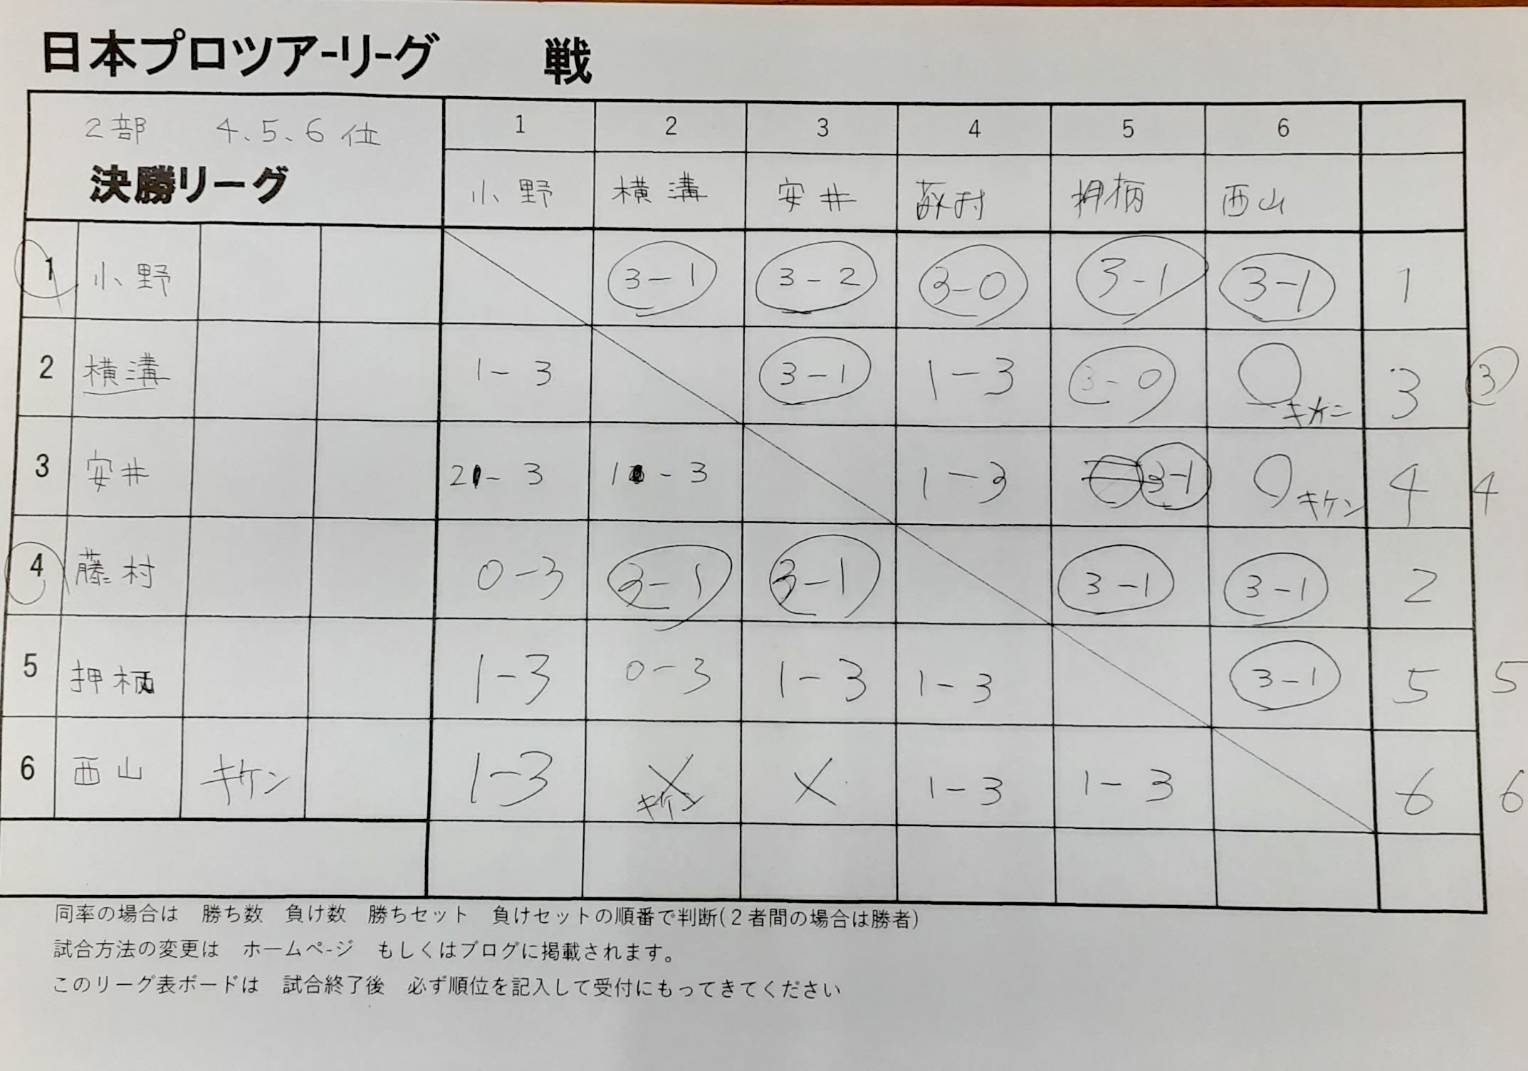 日本プロツアーリーグ 戦
2部 4、5、6位
決勝リーグ
1 2 3 4 5 6
小野 横溝 安井 藤村 押柄 西山
1 小野 3-1 3-2 3-0 3-1 3-1 1
2 横溝 1-3 3-1 1-3 3-0 ○キケン 3 ③
3 安井 2-3 1-3 1-3 3-1 ○キケン 4 4
4 藤村 0-3 3-1 3-1 3-1 3-1 2
5 押柄 1-3 0-3 1-3 1-3 3-1 5 5
6 西山 キケン 1-3 ×キケン × 1-3 1-3 6 6
同率の場合は 勝ち数 負け数 勝ちセット 負けセットの順番で判断(2者間の場合は勝者)
試合方法の変更は ホームページ もしくはブログに掲載されます。
このリーグ表ボードは 試合終了後 必ず順位を記入して受付にもってきてください